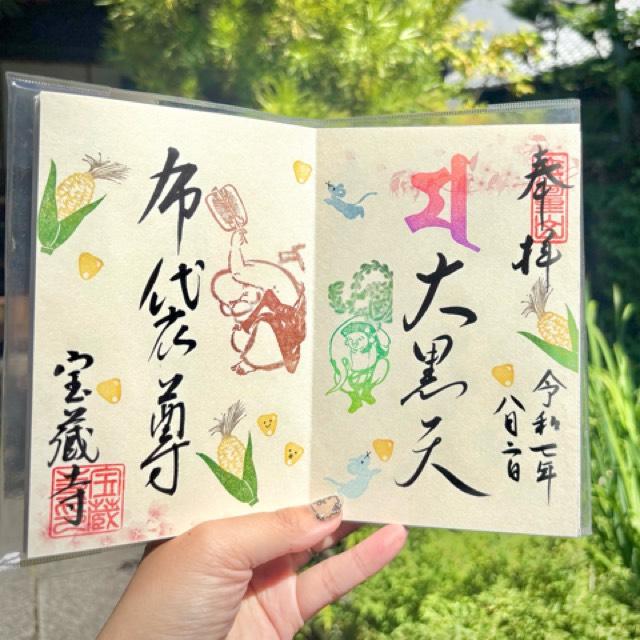 奉拝
令和七年
八月二日
大黒天
布袋尊
宝蔵寺